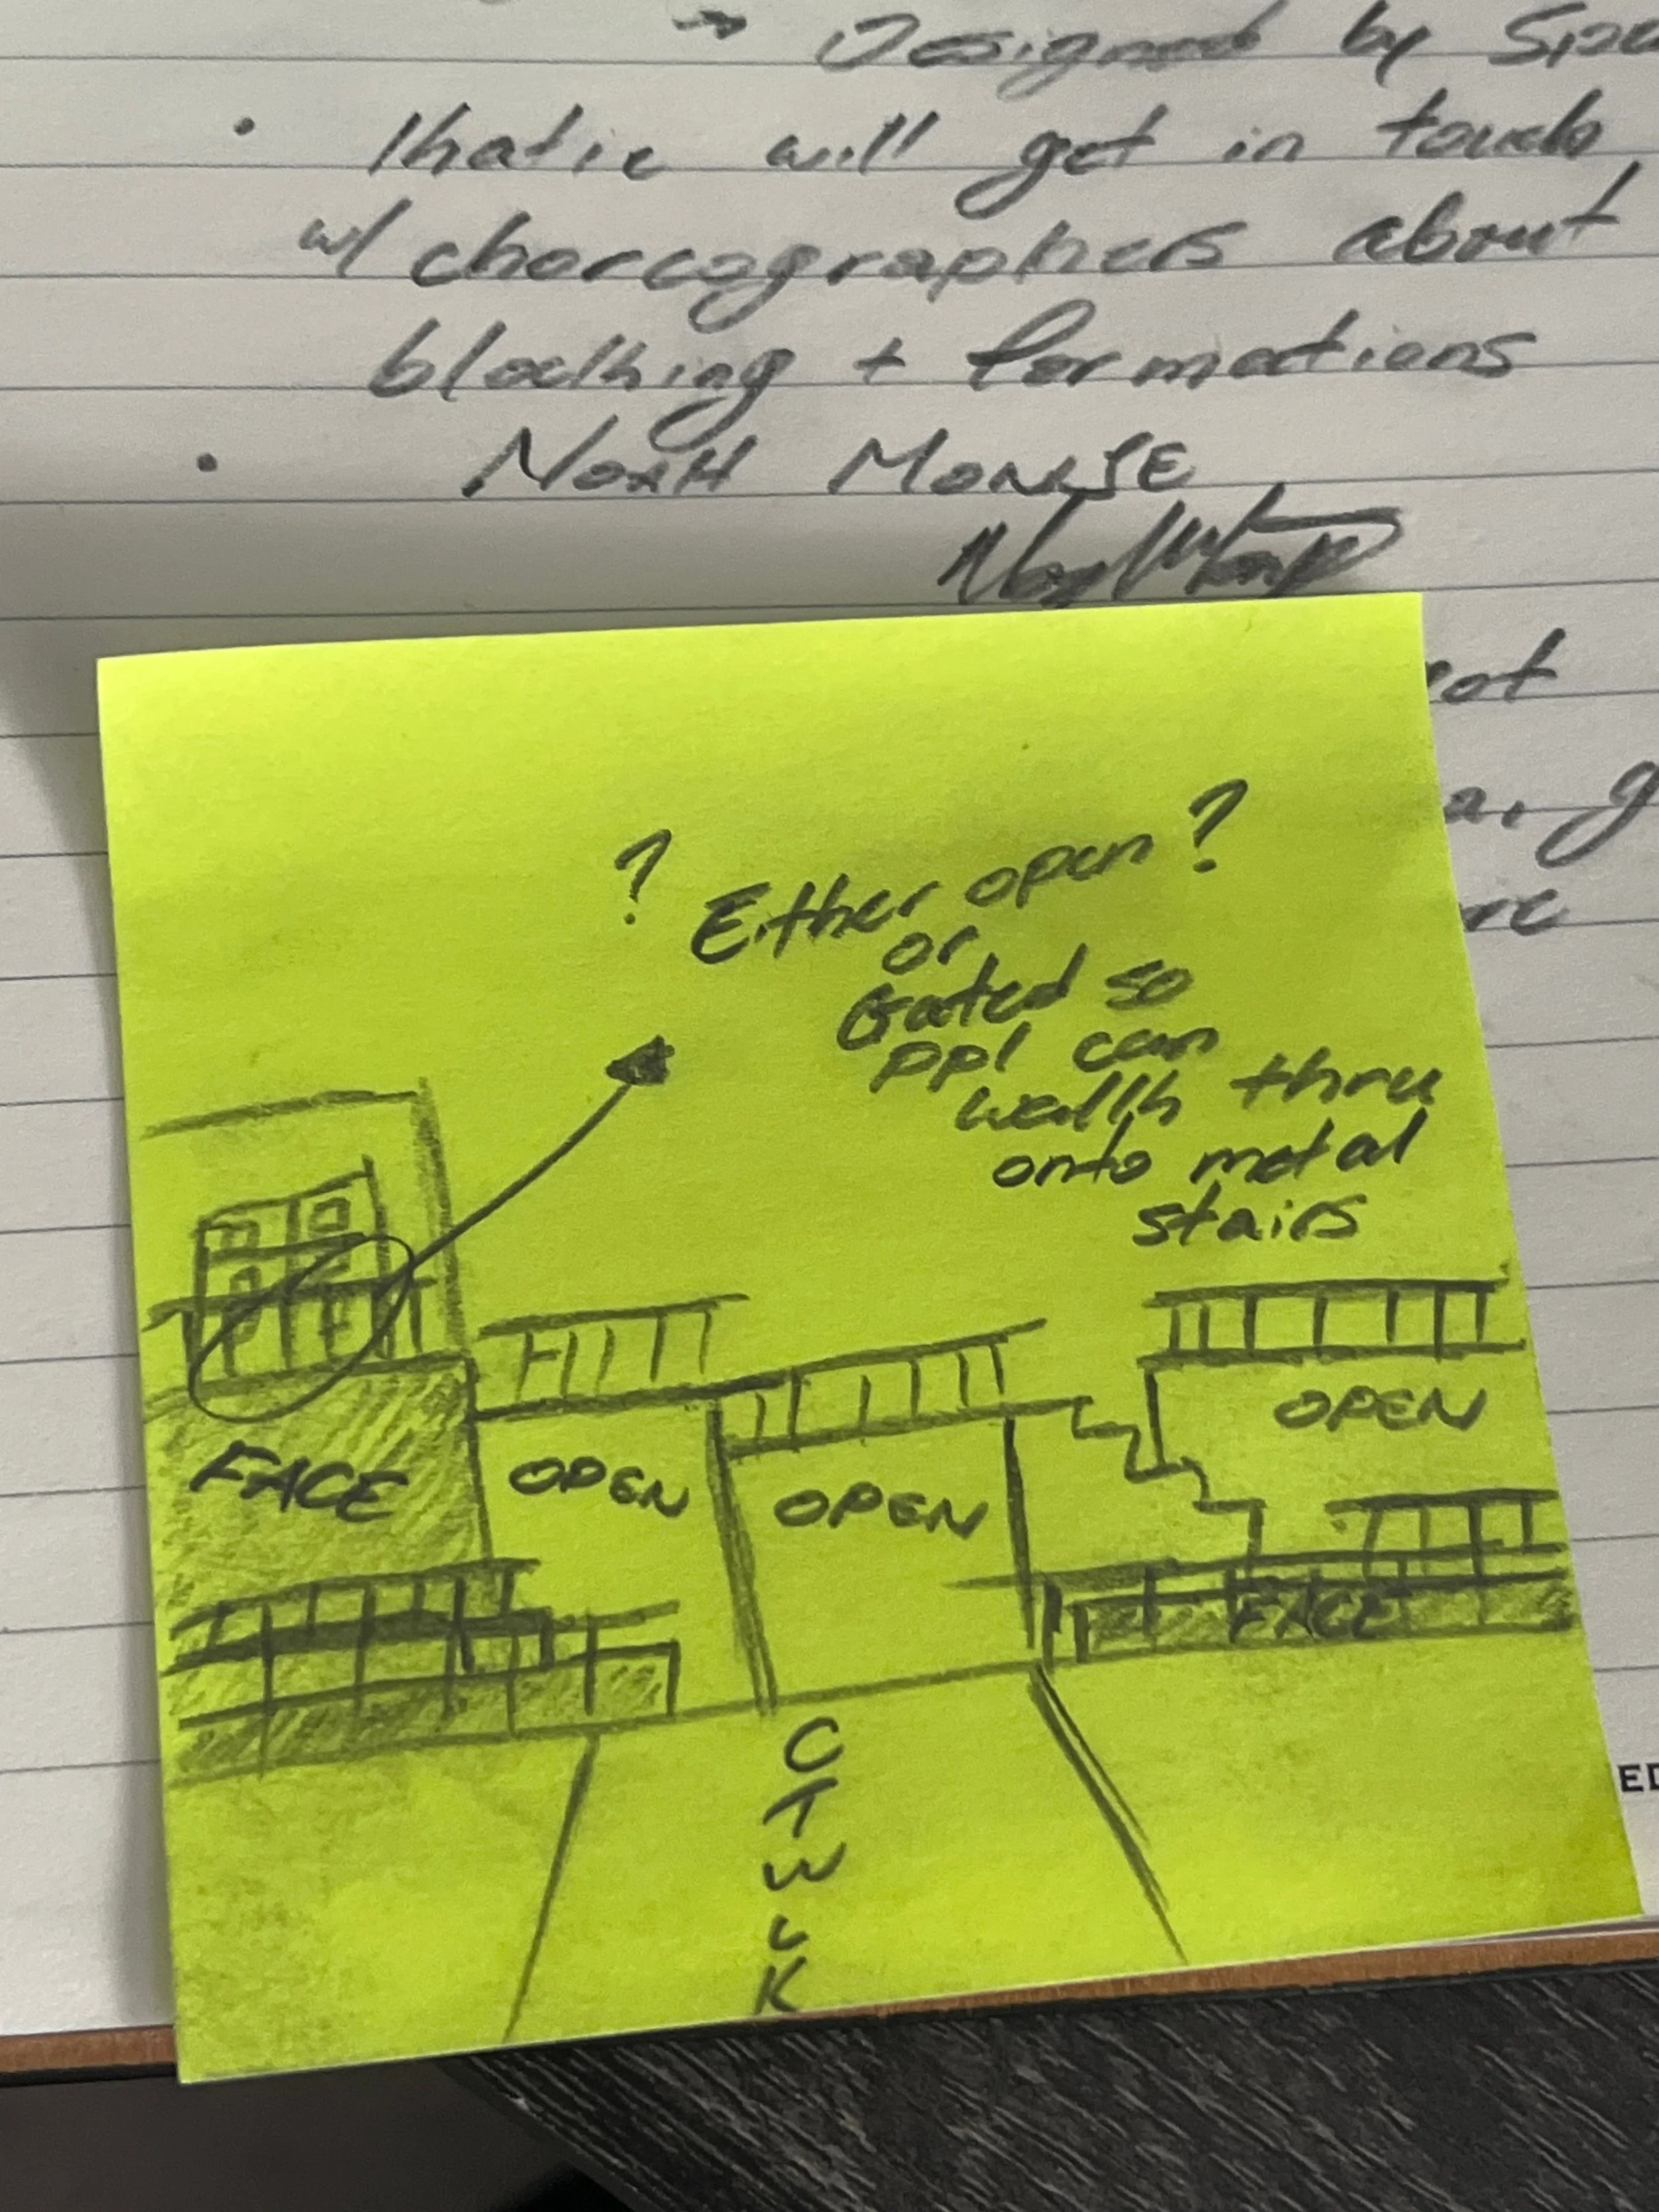 → Designed by
• Katie will get in touch
w/ choreographers about
blocking + formations
• NOAH
?
Either open?
or
Gated so
ppl can
walk thru
onto metal
stairs
OPEN
FACE OPEN OPEN
FACE
C
T
W
L
K